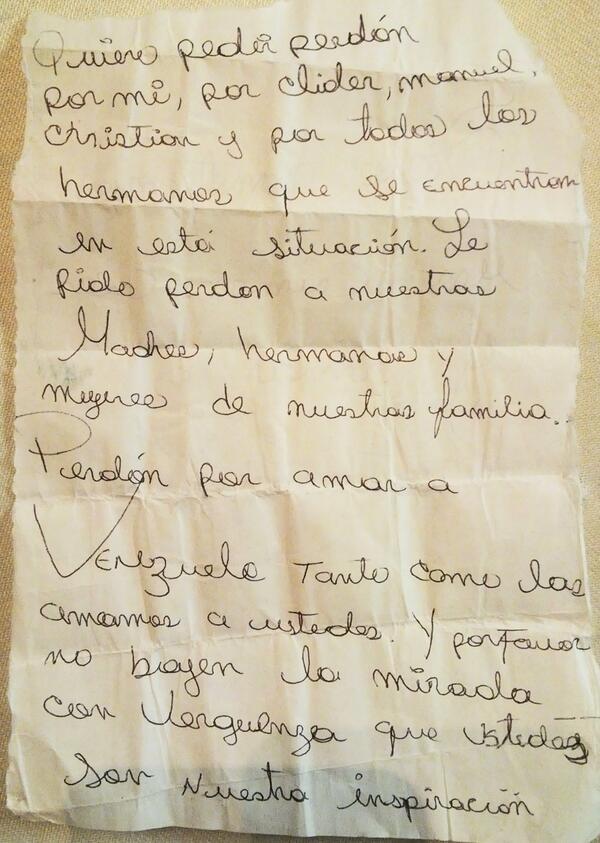 Quiero pedir perdón
por mi, por clider, manuel,
christian y por todos los
hermanos que se encuentran
en está situación. Le
Pido perdon a nuestras
Madres, hermanas y
mujeres de nuestras familia..
Perdón por amar a
Venezuela Tanto como las
amamos a ustedes. Y porfavor
no bajen la mirada
con Verguenza que Ustedes
son Nuestra inspiración